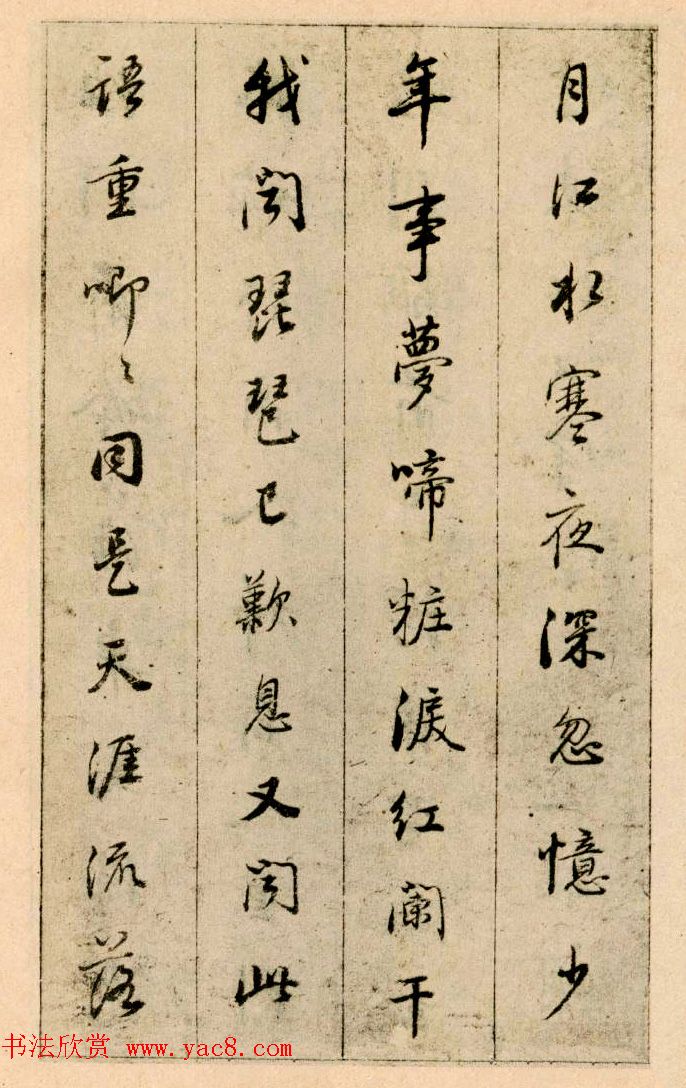 月江水寒夜深忽憶少
年事夢啼粧淚紅闌干
我聞琵琶已歎息又聞此
語重唧〻同是天涯流落
书法欣赏 www.yac8.com